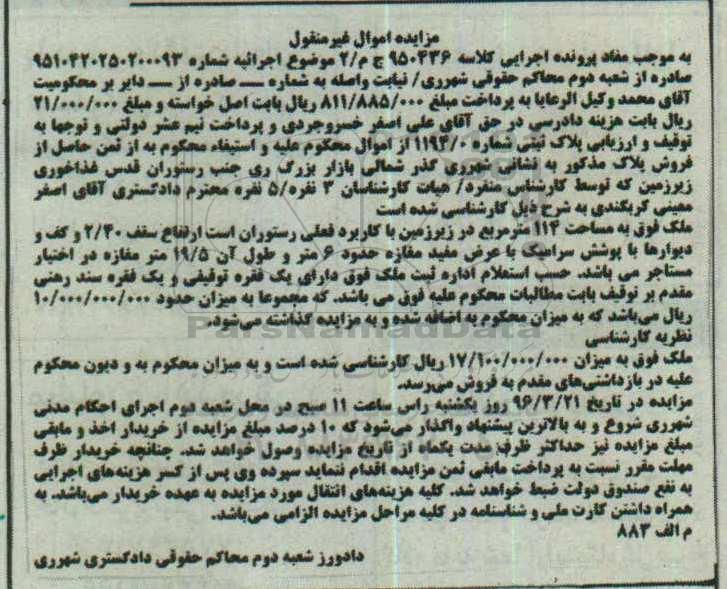 مزایده اموال غیرمنقول
به موجب مفاد پرونده اجرایی کلاسه ۹۵۰۴۳۶ ج م/۲ موضوع اجرائیه شماره ۹۵۱۰۴۲۰۲۵۰۲۰۰۰۹۳
صادره از شعبه دوم محاکم حقوقی شهرری/ نیابت واصله به شماره — صادره از — دایر بر محکومیت
آقای محمد وکیل الرعایا به پرداخت مبلغ ۸۱۱/۸۸۵/۰۰۰ ریال بابت اصل خواسته و مبلغ ۲۱/۰۰۰/۰۰۰
ریال بابت هزینه دادرسی در حق آقای علی اصغر خسروجردی و پرداخت نیم عشر دولتی و توجها به
توقیف و ارزیابی پلاک ثبتی شماره ۱۱۹۴/۰ از اموال محکوم علیه و استیفاء محکوم به از ثمن حاصل از
فروش پلاک مذکور به نشانی شهرری گذر شمالی بازار بزرگ ری جنب رستوران قدس غذاخوری
زیرزمین که توسط کارشناس منفرد/ هیات کارشناسان ۳ نفره/۵ نفره محترم دادگستری آقای اصغر
معینی کربکندی به شرح ذیل کارشناسی شده است
ملک فوق به مساحت ۱۱۴ مترمربع در زیرزمین با کاربرد فعلی رستوران است ارتفاع سقف ۲/۴۰ و کف و
دیوارها با پوشش سرامیک با عرض مفید مغازه حدود ۶ متر و طول آن ۱۹/۵ متر مغازه در اختیار
مستاجر می باشد. حسب استعلام اداره ثبت ملک فوق دارای یک فقره توقیفی و یک فقره سند رهنی
مقدم بر توقیف بابت مطالبات محکوم علیه فوق می باشد. که مجموعا به میزان حدود ۱۰/۰۰۰/۰۰۰/۰۰۰
ریال می‌باشد که به میزان محکوم به اضافه شده و به مزایده گذاشته می‌شود.
نظریه کارشناسی
ملک فوق به میزان ۱۷/۱۰۰/۰۰۰/۰۰۰ ریال کارشناسی شده است و به میزان محکوم به و دیون محکوم
علیه در بازداشتی‌های مقدم به فروش می‌رسد.
مزایده در تاریخ ۹۶/۳/۲۱ روز یکشنبه راس ساعت ۱۱ صبح در محل شعبه دوم اجرای احکام مدنی
شهرری شروع و به بالاترین پیشنهاد واگذار می‌شود که ۱۰ درصد مبلغ مزایده از خریدار اخذ و مابقی
مبلغ مزایده نیز حداکثر ظرف مدت یکماه از تاریخ مزایده وصول خواهد شد. چنانچه خریدار ظرف
مهلت مقرر نسبت به پرداخت مابقی ثمن مزایده اقدام ننماید سپرده وی پس از کسر هزینه‌های اجرایی
به نفع صندوق دولت ضبط خواهد شد. کلیه هزینه‌های انتقال مورد مزایده به عهده خریدار می‌باشد. به
همراه داشتن کارت ملی و شناسنامه در کلیه مراحل مزایده الزامی می‌باشد.
م الف ۸۸۳
دادورز شعبه دوم محاکم حقوقی دادگستری شهرری
ParsNamadData